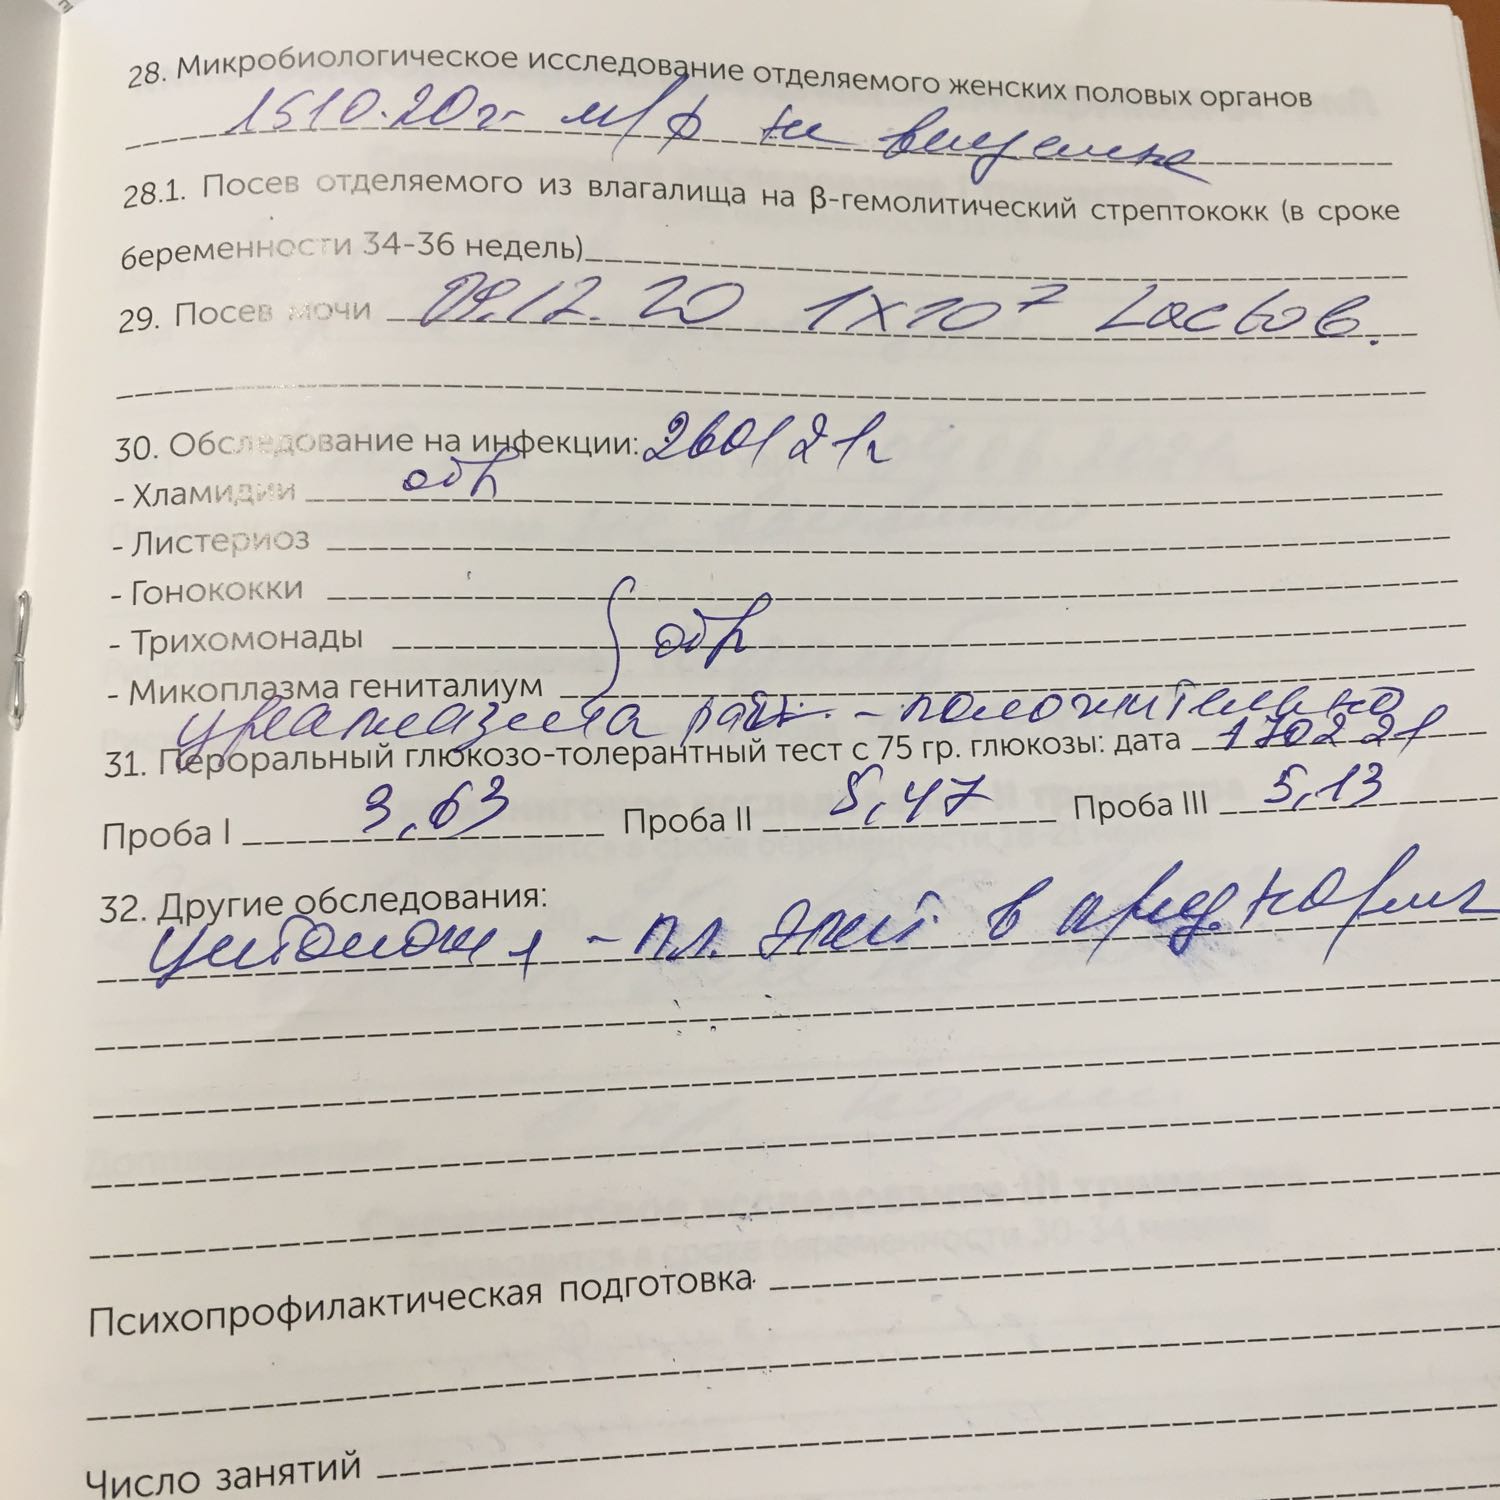 28. Микробиологическое исследование отделяемого женских половых органов
15 10.20г- м/ф не выделена
28.1. Посев отделяемого из влагалища на β-гемолитический стрептококк (в сроке
беременности 34-36 недель)
29. Посев мочи 09.12.20 1х10⁷ Lactob.
30. Обследование на инфекции: 260121г
- Хламидии отр
- Листериоз
- Гонококки
- Трихомонады отр
- Микоплазма гениталиум
уреаплазма - положительно
31. Пероральный глюкозо-толерантный тест с 75 гр. глюкозы: дата 170221
Проба I 3,63 Проба II 5,47 Проба III 5,13
32. Другие обследования:
цитология - пл. эпит в пред. нормы
Психопрофилактическая подготовка
Число занятий